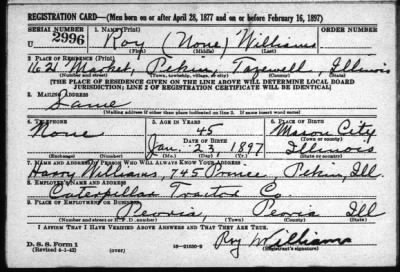 REGISTRATION CARD—(Men born on or after April 28, 1877 and on or before February 16, 1897)
SERIAL NUMBER 1. NAME (Print) ORDER NUMBER
U 2996 Roy (None) Williams
(First) (Middle) (Last)
2. PLACE OF RESIDENCE (Print)
1621 Market, Pekin, Tazewell, Illinois
(Number and street) (Town, township, village, or city) (County) (State)
[THE PLACE OF RESIDENCE GIVEN ON THE LINE ABOVE WILL DETERMINE LOCAL BOARD
JURISDICTION; LINE 2 OF REGISTRATION CERTIFICATE WILL BE IDENTICAL]
3. MAILING ADDRESS
Same
(Mailing address if other than place indicated on line 2. If same insert word same)
4. TELEPHONE 5. AGE IN YEARS 6. PLACE OF BIRTH
None 45 Mason City
DATE OF BIRTH (Town or county)
Jan. 23, 1897 Illinois
(Exchange) (Number) (Mo.) (Day) (Yr.) (State or country)
7. NAME AND ADDRESS OF PERSON WHO WILL ALWAYS KNOW YOUR ADDRESS
Harry Williams, 745 Prince, Pekin, Ill.
8. EMPLOYER'S NAME AND ADDRESS
Caterpillar Tractor Co.
9. PLACE OF EMPLOYMENT OR BUSINESS
Peoria, Peoria Ill
(Number and street or R. F. D. number) (Town) (County) (State)
I AFFIRM THAT I HAVE VERIFIED ABOVE ANSWERS AND THAT THEY ARE TRUE.
D. S. S. Form 1
(Revised 4-1-42) (over) 16—21630-2 Roy Williams
(Registrant's signature)